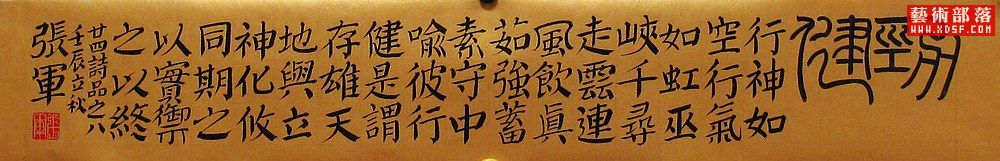 藝術部落
www.XDSF.com
勁健
行神如
空行氣
如虹巫
峽千尋
走雲連
風飲眞
茹強蓄
素守中
喻彼行
健是謂
存雄天
地與立
神化攸
同期之
以實禦
之以終
廿四詩品之八
壬辰立秋
張軍